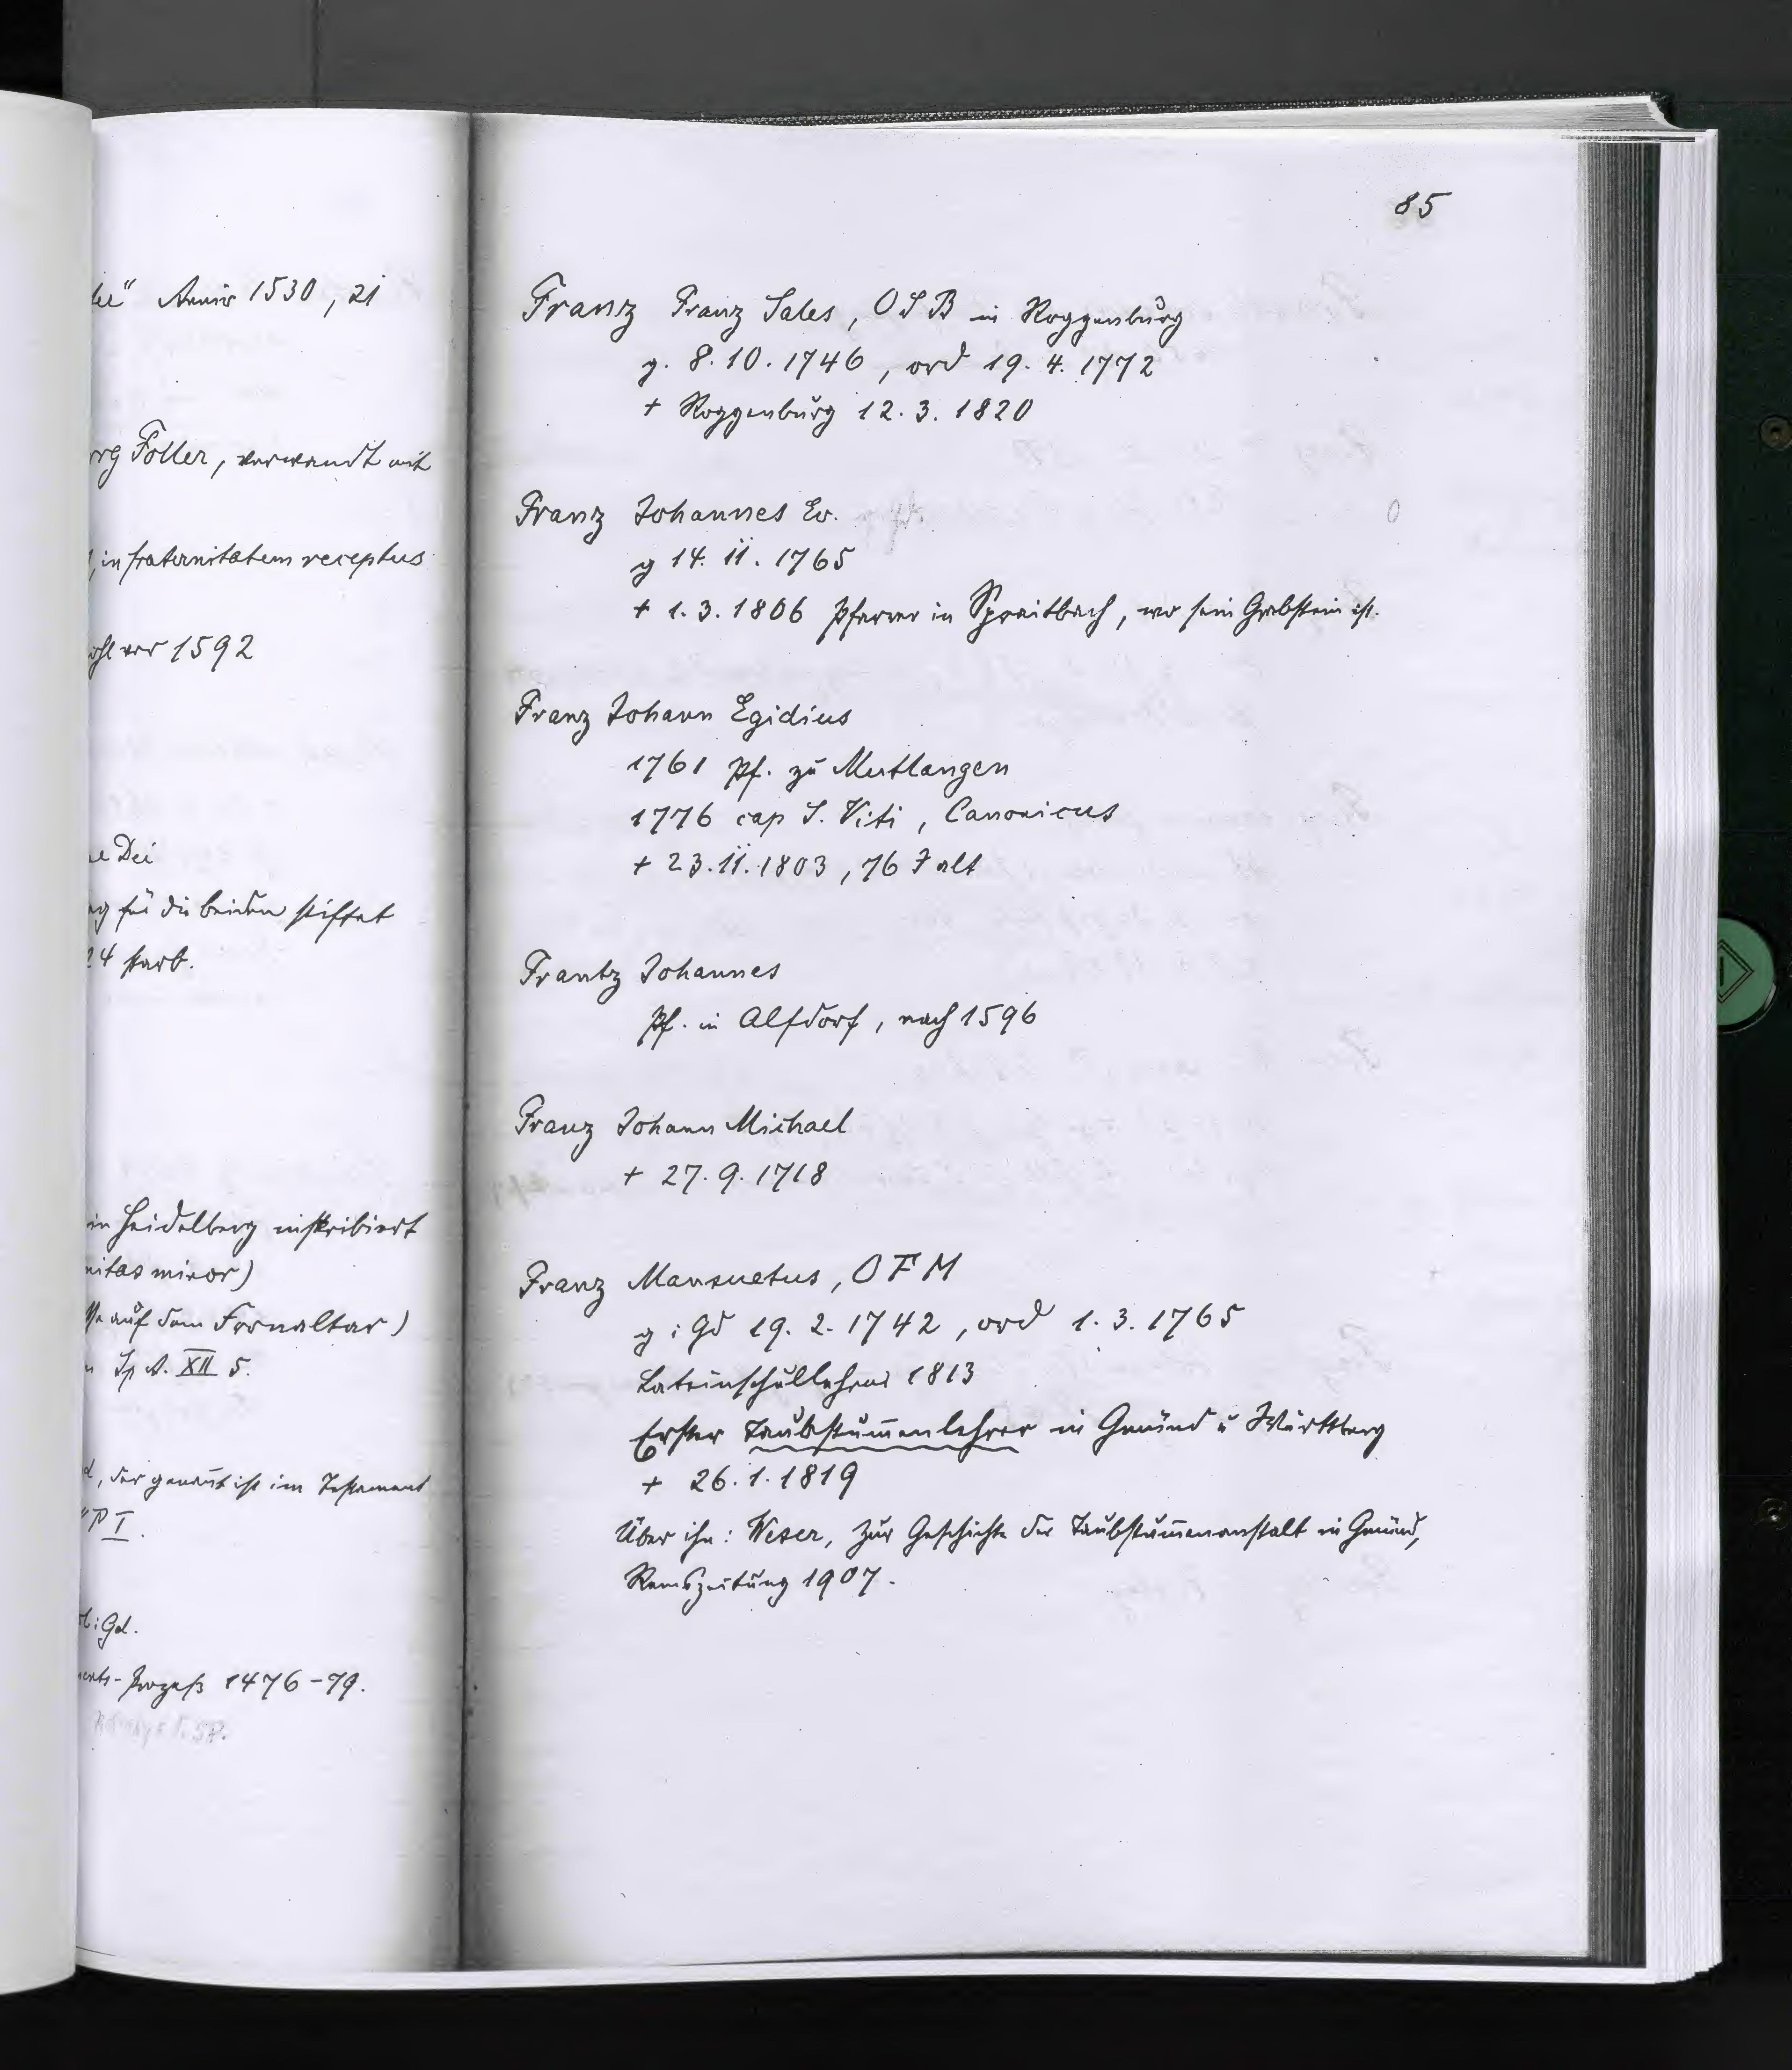 lei" Anniv 1530, 21
org Foller, verwandt mit
, in fraternitatem receptus
ohl vor 1592
ne Dei
ng für die beiden stiftet
24 starb.
in Heidelberg inskribiert
nitas minor)
sse auf dem Fronaltar)
n Sp A. XII 5.
d, der genañt ist im Testament
"P I.
l i Gd.
ments-Prozeß 1476-79.
85
Franz Franz Sales, OSB in Roggenburg
g. 8.10.1746, ord 19.4.1772
+ Roggenburg 12.3.1820
Franz Johannes Ev.
g 14.11.1765
+ 1.3.1806 Pfarrer in Spraitbach, wo sein Grabstein ist.
Franz Johann Egidius
1761 Pf. zu Mutlangen
1776 cap S. Viti, Canonicus
+ 23.11.1803, 76 J alt
Frantz Johannes
Pf. in Alfdorf, nach 1596
Franz Johann Michael
+ 27.9.1718
Franz Mansuetus, OFM
g i Gd 19.2.1742, ord 1.3.1765
Lateinschullehrer 1813
Erster Taubstum̄enlehrer in Gmünd u Württberg
+ 26.1.1819
Über ihn: Weser, Zur Geschichte der Taubstum̄enanstalt in Gmünd,
Remszeitung 1907.